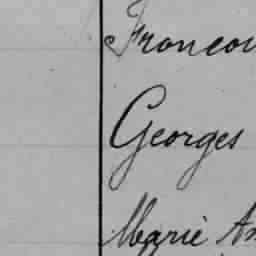 Francou
Georges
Marie An